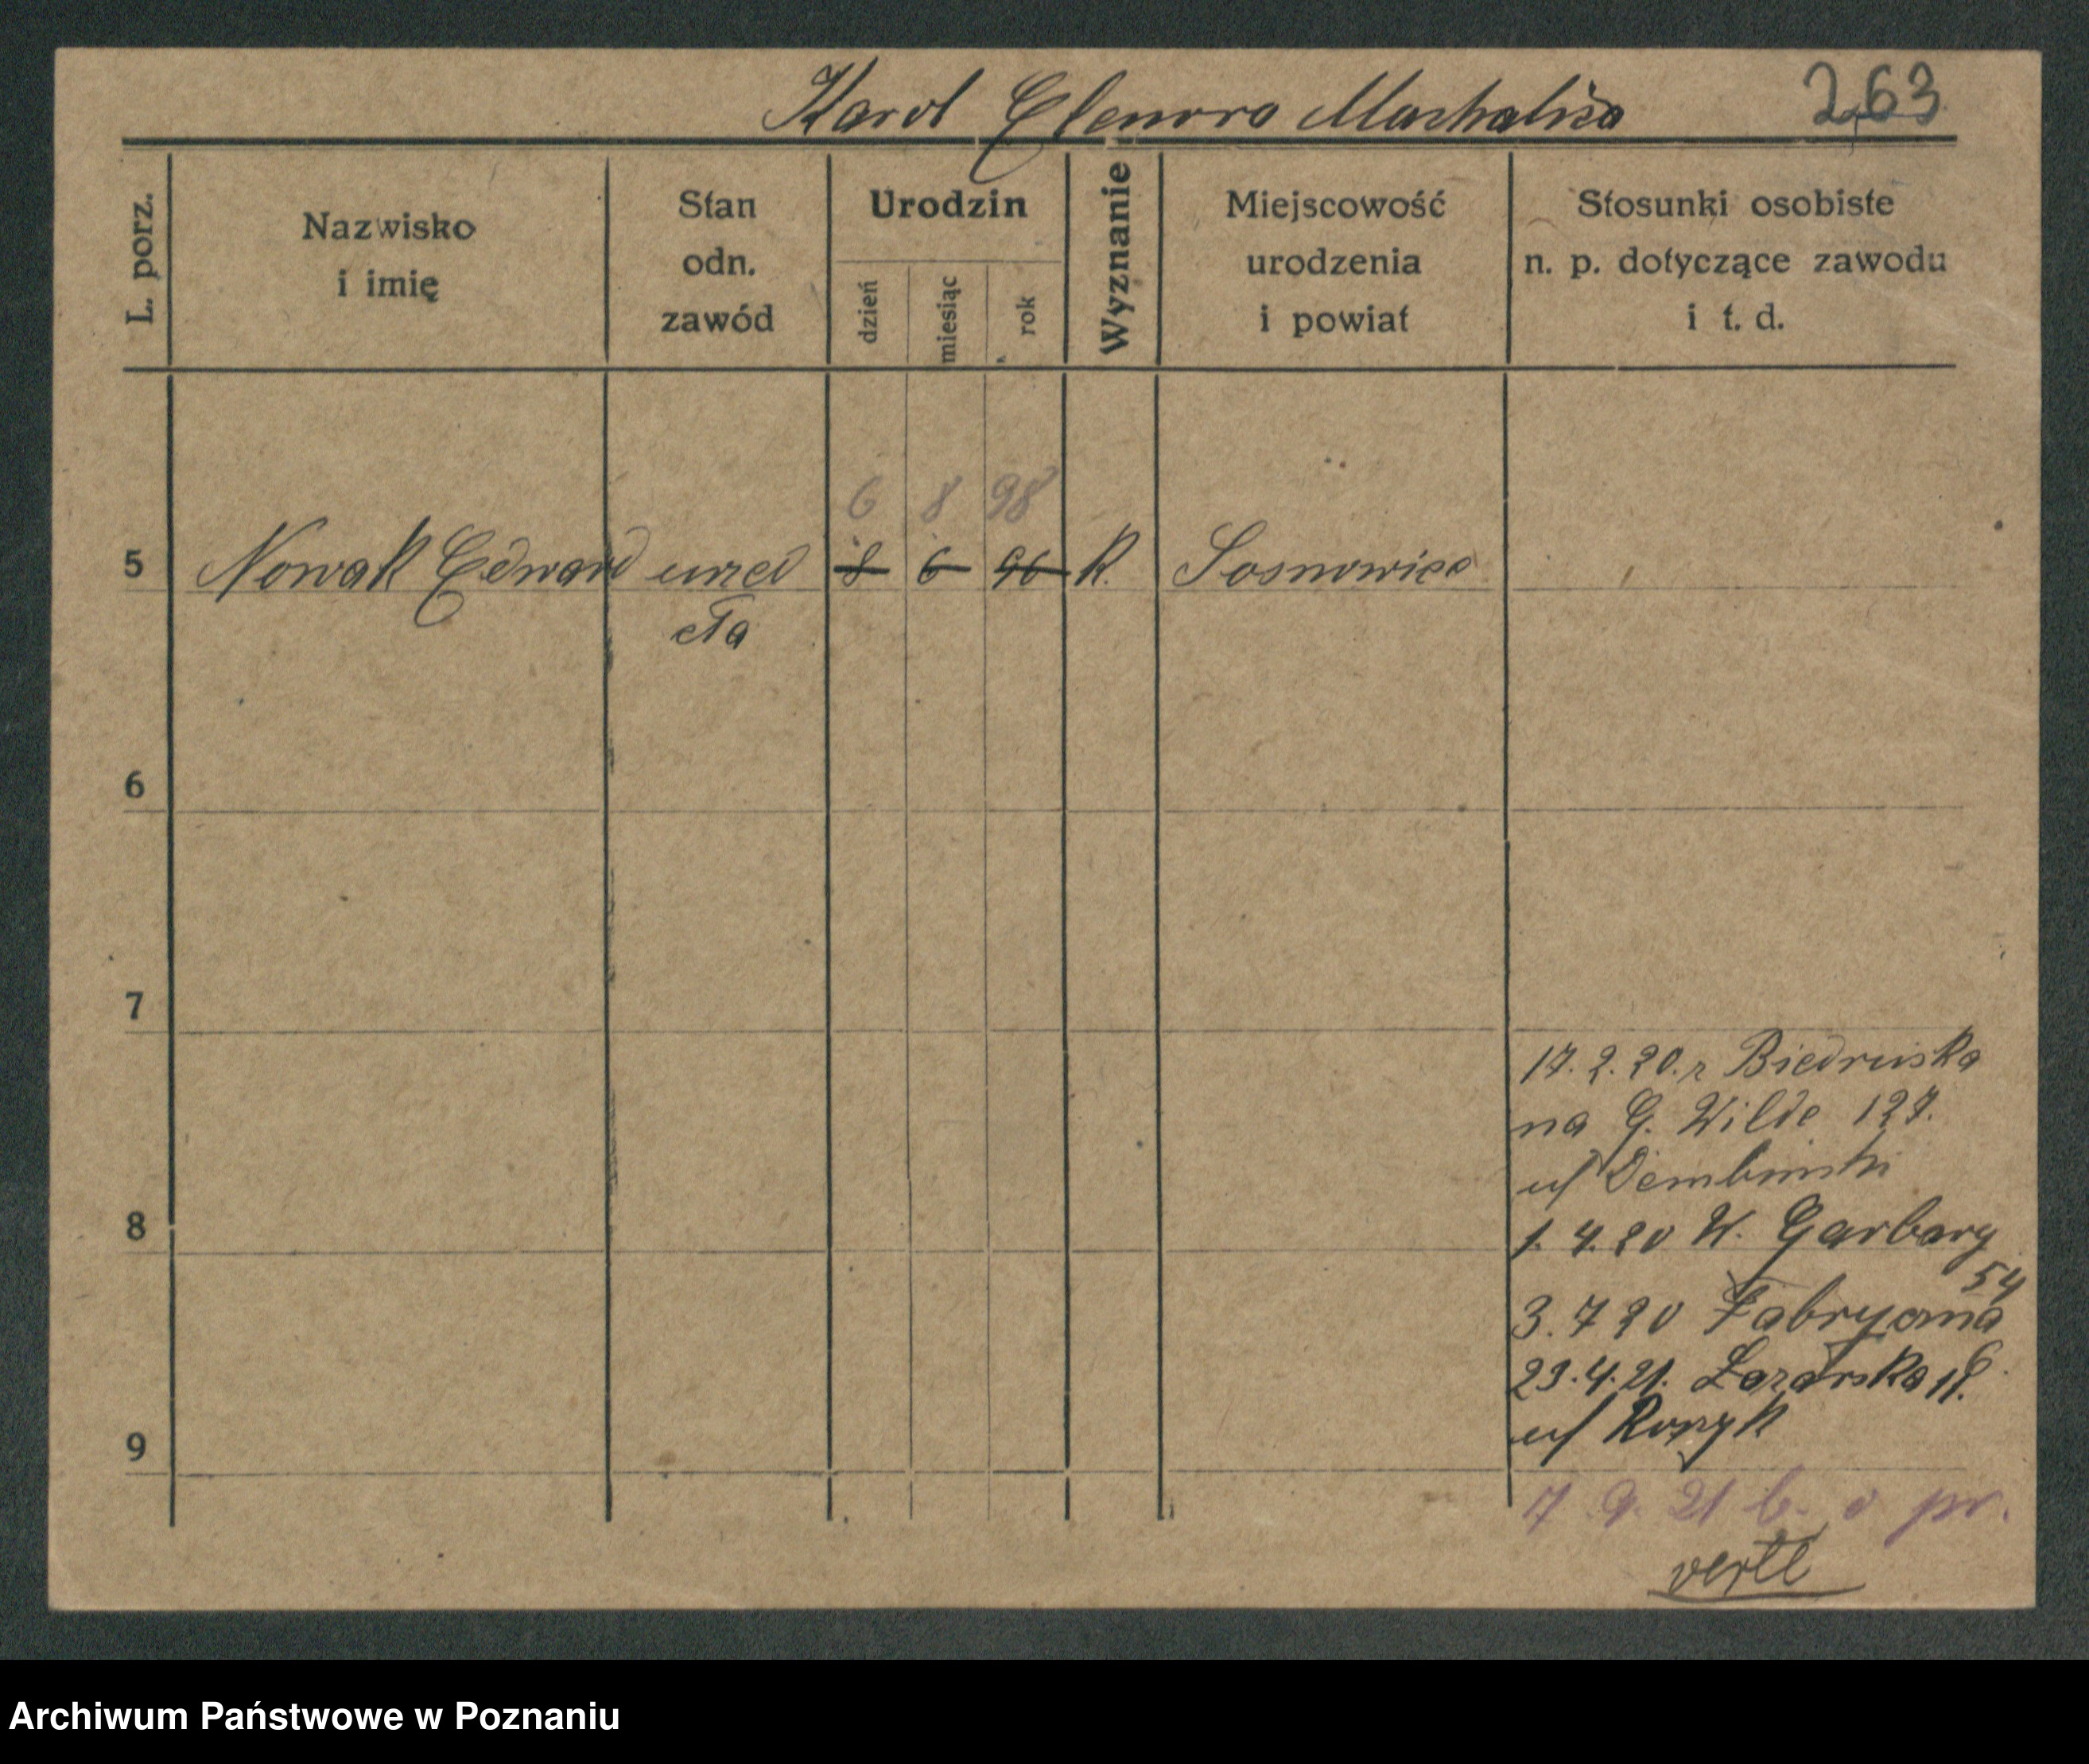 Karol Elenora 263
L. porz.
Nazwisko
i imię
Stan
odn.
zawód
Urodzin
dzień
miesiąc
rok
Wyznanie
Miejscowość
urodzenia
i powiat
Stosunki osobiste
n. p. dotyczące zawodu
i t. d.
6 8 98
5 Nowak Edward urzed 8 6 96 K. Sosnowiec
cła
6
7
17. 2. 20. z Biedruska
na G. Wilde 127.
u/ Dembinski
8
1. 4. 20 W. Garbary
54
3. 7 20 Fabryczna
6.
23. 4. 21. Lazarska 18.
u/
9
7. 9. 21 b. o pr.
verte
Archiwum Państwowe w Poznaniu